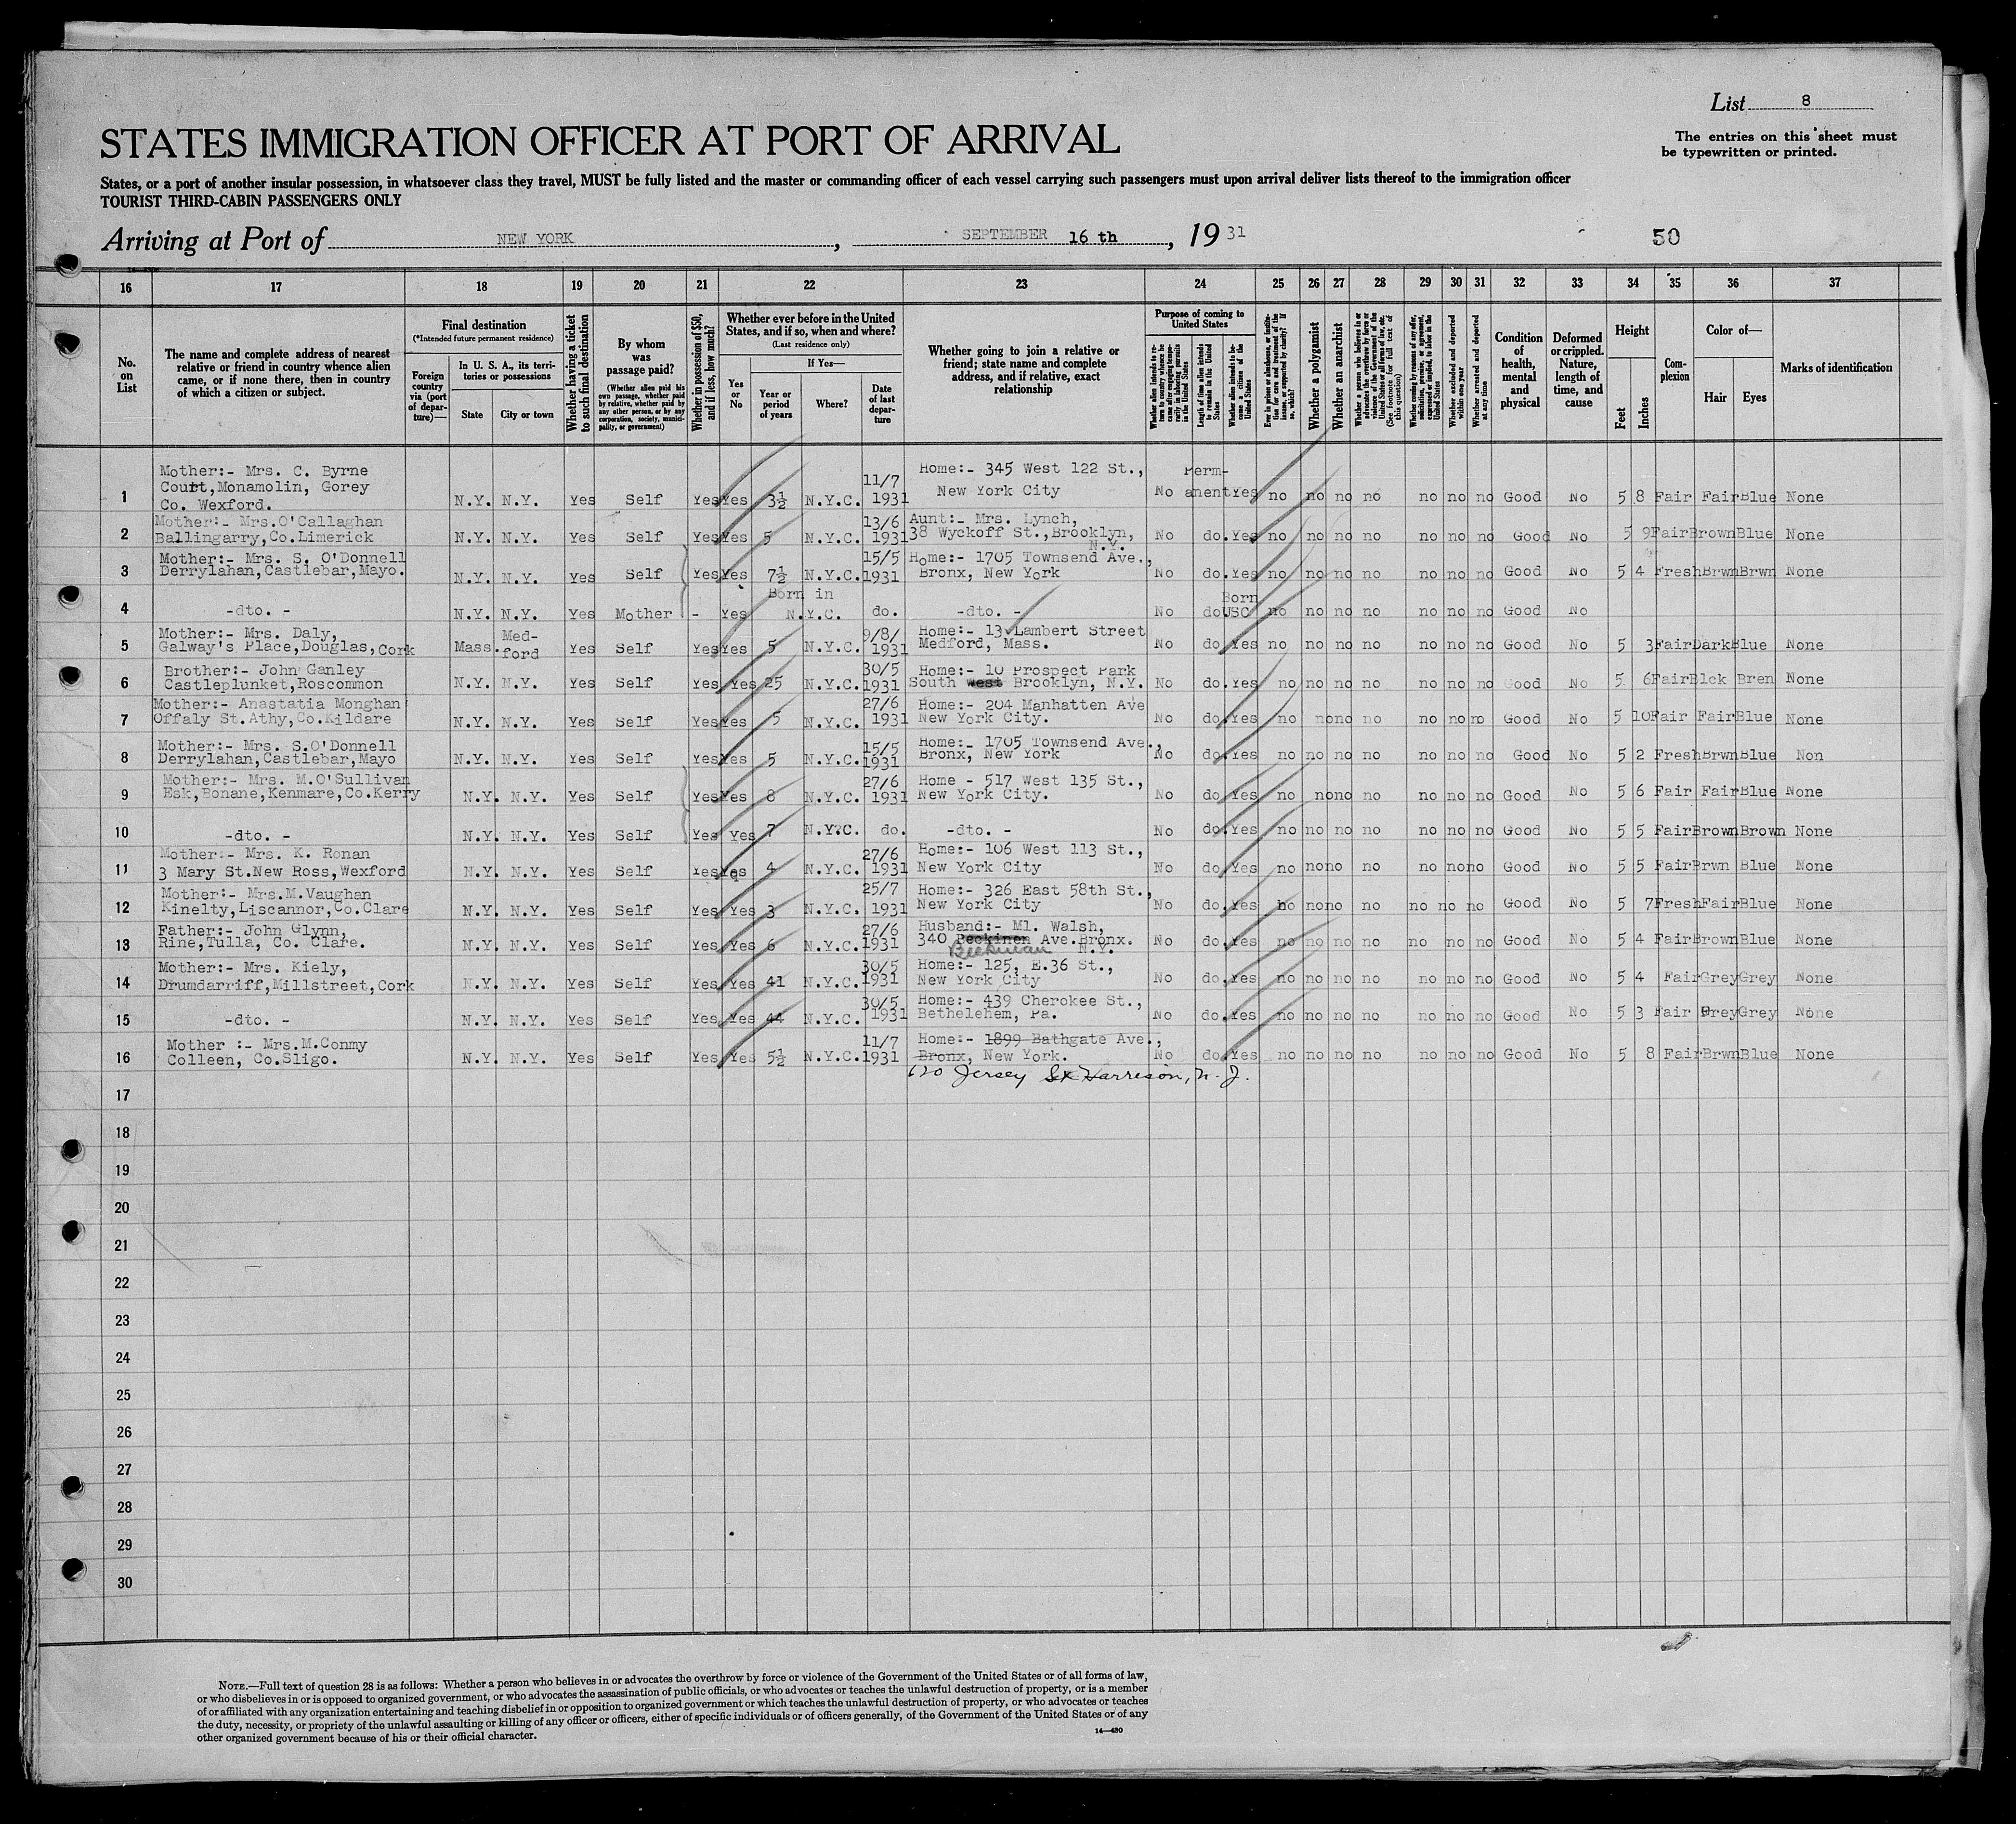 List 8
STATES IMMIGRATION OFFICER AT PORT OF ARRIVAL
The entries on this sheet must
be typewritten or printed.
States, or a port of another insular possession, in whatsoever class they travel, MUST be fully listed and the master or commanding officer of each vessel carrying such passengers must upon arrival deliver lists thereof to the immigration officer
TOURIST THIRD-CABIN PASSENGERS ONLY
Arriving at Port of NEW YORK, SEPTEMBER 16 th, 19 31
50
16 17 18 19 20 21 22 23 24 25 26 27 28 29 30 31 32 33 34 35 36 37
No. on List
The name and complete address of nearest relative or friend in country whence alien came, or if none there, then in country of which a citizen or subject.
Final destination
(*Intended future permanent residence)
Foreign country via (port of departure)—
In U. S. A., its territories or possessions
State
City or town
Whether having a ticket to such final destination
By whom was passage paid?
(Whether alien paid his own passage, whether paid by relative, whether paid by any other person, or by any corporation, society, municipality, or government)
Whether in possession of $50, and if less, how much?
Whether ever before in the United States, and if so, when and where?
(Last residence only)
Yes or No
If Yes—
Year or period of years
Where?
Date of last departure
Whether going to join a relative or friend; state name and complete address, and if relative, exact relationship
Purpose of coming to United States
Whether alien intends to return to country whence he came after engaging temporarily in laboring pursuits in the United States
Length of time alien intends to remain in the United States
Whether alien intends to become a citizen of the United States
Ever in prison or almshouse, or institution for care and treatment of the insane, or supported by charity? If so, which?
Whether a polygamist
Whether an anarchist
Whether a person who believes in or advocates the overthrow by force or violence of the Government of the United States or all forms of law, etc. (See footnote for full text of this question)
Whether coming by reasons of any offer, solicitation, promise, or agreement, expressed or implied, to labor in the United States
Whether excluded and deported within one year
Whether arrested and deported at any time
Condition of health, mental and physical
Deformed or crippled. Nature, length of time, and cause
Height
Feet
Inches
Complexion
Color of—
Hair
Eyes
Marks of identification
1 Mother:- Mrs. C. Byrne
Court,Monamolin, Gorey
Co. Wexford. N.Y. N.Y. Yes Self Yes Yes 3½ N.Y.C. 11/7 1931 Home:- 345 West 122 St., New York City No Permanent Yes no no no no no no no Good No 5 8 Fair Fair Blue None
2 Mother:- Mrs.O'Callaghan
Ballingarry,Co.Limerick N.Y. N.Y. Yes Self Yes Yes 5 N.Y.C. 13/6 1931 Aunt:- Mrs. Lynch, 38 Wyckoff St.,Brooklyn, N.Y. No do. Yes no no no no no no no Good No 5 9 Fair Brown Blue None
3 Mother:- Mrs. S. O'Donnell
Derrylahan,Castlebar,Mayo. N.Y. N.Y. Yes Self Yes Yes 7½ N.Y.C. 15/5 1931 Home:- 1705 Townsend Ave., Bronx, New York No do. Yes no no no no no no no Good No 5 4 Fresh Brwn Brwn None
4 -dto. - N.Y. N.Y. Yes Mother - Yes Born in N.Y.C. do. -dto. - No do Born USC no no no no no no no Good No
5 Mother:- Mrs. Daly,
Galway's Place,Douglas,Cork Mass. Med-ford Yes Self Yes Yes 5 N.Y.C. 9/8/ 1931 Home:- 13 Lambert Street Medford, Mass. No do. Yes no no no no no no no Good No 5 3 Fair Dark Blue None
6 Brother:- John Ganley
Castleplunket,Roscommon N.Y. N.Y. Yes Self Yes Yes 25 N.Y.C. 30/5 1931 Home:- 10 Prospect Park South west Brooklyn, N.Y. No do. Yes no no no no no no no Good No 5 6 Fair Blck Bren None
7 Mother:- Anastatia Monghan
Offaly St.Athy,Co.Kildare N.Y. N.Y. Yes Self Yes Yes 5 N.Y.C. 27/6 1931 Home:- 204 Manhatten Ave New York City. No do. Yes no no no no no no no Good No 5 10 Fair Fair Blue None
8 Mother:- Mrs. S.O'Donnell
Derrylahan,Castlebar,Mayo N.Y. N.Y. Yes Self Yes Yes 5 N.Y.C. 15/5 1931 Home:- 1705 Townsend Ave., Bronx, New York No do. Yes no no no no no no no Good No 5 2 Fresh Brwn Blue Non
9 Mother:- Mrs. M.O'Sullivan
Esk,Bonane,Kenmare,Co.Kerry N.Y. N.Y. Yes Self Yes Yes 8 N.Y.C. 27/6 1931 Home - 517 West 135 St., New York City. No do. Yes no no no no no no no Good No 5 6 Fair Fair Blue None
10 -dto. - N.Y. N.Y. Yes Self Yes Yes 7 N.Y.C. do. -dto. - No do. Yes no no no no no no no Good No 5 5 Fair Brown Brown None
11 Mother:- Mrs. K. Ronan
3 Mary St.New Ross,Wexford N.Y. N.Y. Yes Self Yes Yes 4 N.Y.C. 27/6 1931 Home:- 106 West 113 St., New York City No do. Yes no no no no no no no Good No 5 5 Fair Brwn Blue None
12 Mother:- Mrs.M.Vaughan
Kinelty,Liscannor,Co.Clare N.Y. N.Y. Yes Self Yes Yes 3 N.Y.C. 25/7 1931 Home:- 326 East 58th St., New York City No do. Yes no no no no no no no Good No 5 7 Fresh Fair Blue None
13 Father:- John Glynn,
Rine,Tulla, Co. Clare. N.Y. N.Y. Yes Self Yes Yes 6 N.Y.C. 27/6 1931 Husband:- Ml. Walsh, 340 Beekman Ave.Bronx. N.Y. No do. Yes no no no no no no no Good No 5 4 Fair Brown Blue None
14 Mother:- Mrs. Kiely,
Drumdarriff,Millstreet,Cork N.Y. N.Y. Yes Self Yes Yes 41 N.Y.C. 30/5 1931 Home:- 125, E.36 St., New York City No do. Yes no no no no no no no Good No 5 4 Fair Grey Grey None
15 -dto. - N.Y. N.Y. Yes Self Yes Yes 44 N.Y.C. 30/5 1931 Home:- 439 Cherokee St., Bethelehem, Pa. No do. Yes no no no no no no no Good No 5 3 Fair Grey Grey None
16 Mother :- Mrs.M.Conmy
Colleen, Co.Sligo. N.Y. N.Y. Yes Self Yes Yes 5½ N.Y.C. 11/7 1931 Home:- 1899 Bathgate Ave., Bronx, New York. No do. Yes no no no no no no no Good No 5 8 Fair Brwn Blue None
Jersey St Harrison, N. J.
17
18
19
20
21
22
23
24
25
26
27
28
29
30
NOTE.—Full text of question 28 is as follows: Whether a person who believes in or advocates the overthrow by force or violence of the Government of the United States or of all forms of law,
or who disbelieves in or is opposed to organized government, or who advocates the assassination of public officials, or who advocates or teaches the unlawful destruction of property, or is a member
of or affiliated with any organization entertaining and teaching disbelief in or opposition to organized government or which teaches the unlawful destruction of property, or who advocates or teaches
the duty, necessity, or propriety of the unlawful assaulting or killing of any officer or officers, either of specific individuals or of officers generally, of the Government of the United States or of any
other organized government because of his or their official character.
14—480